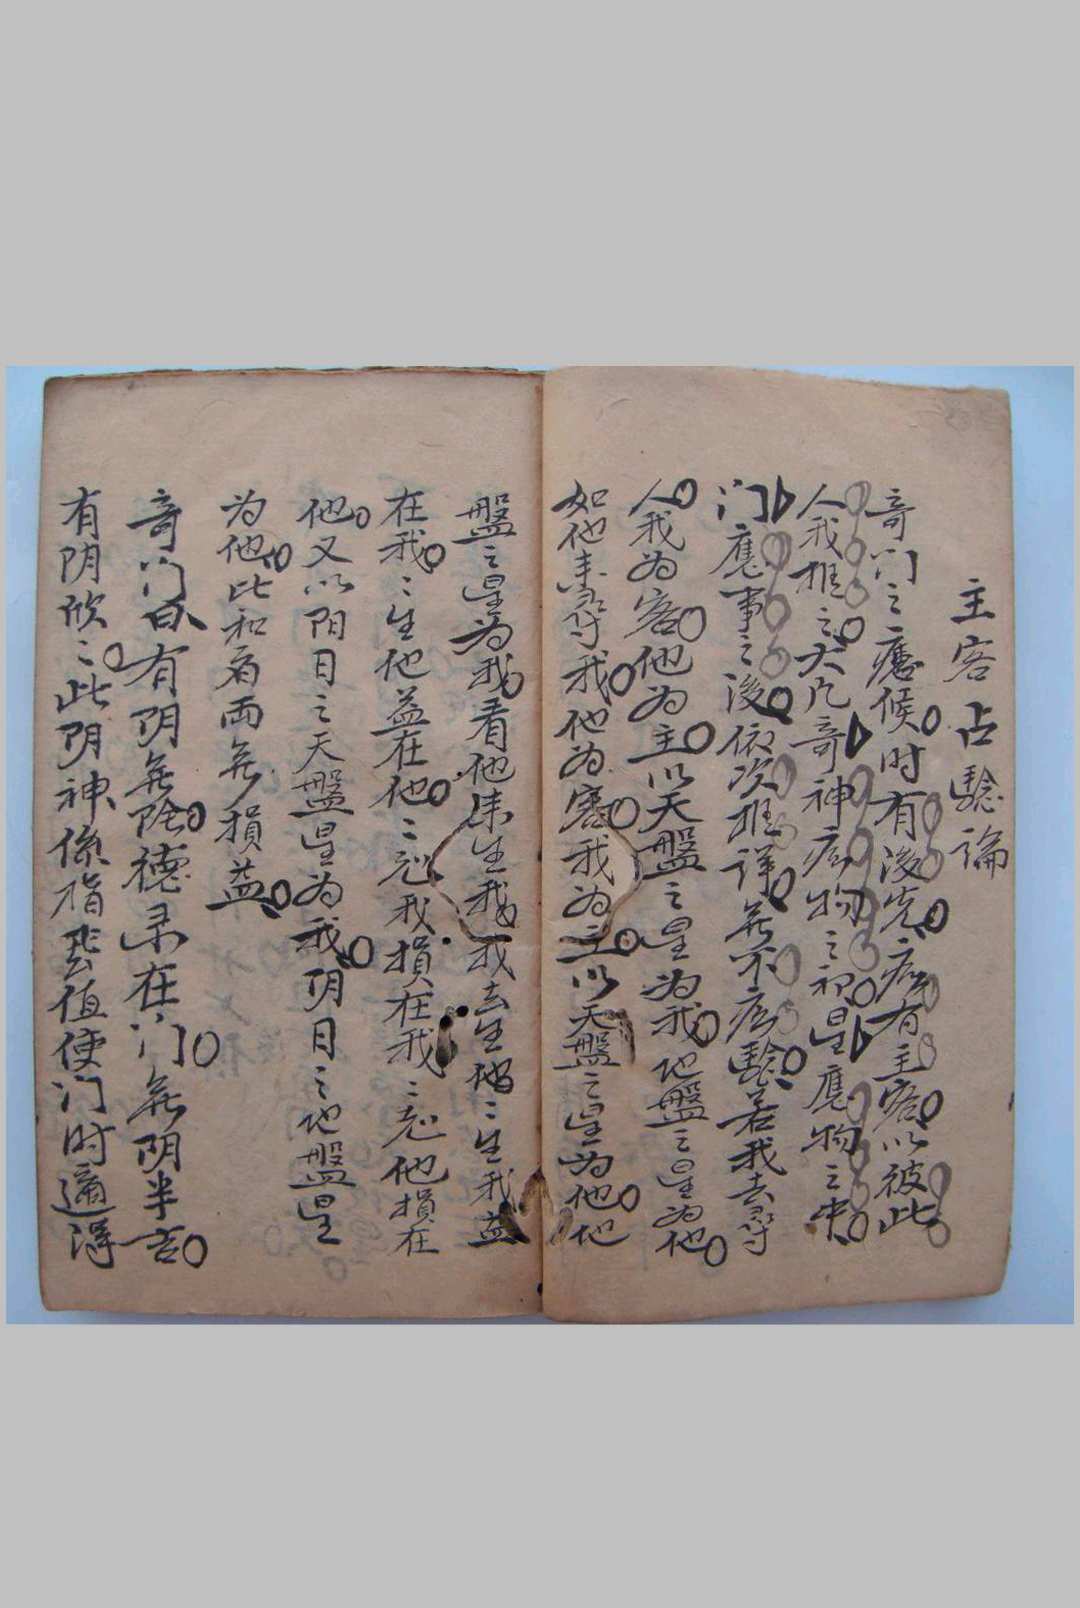 主客占驗論
奇门之應候时有後先应有主客以彼此
人我推之大凡奇神应物之初星應物之中
门應事之後依次推详無不应驗若我去尋
人我为客他为主以天盤之星为我地盤之星为他
如他来尋我他为客我为主以天盤之星为他地
盤之星为我看他来生我我去生他〻生我益
在我〻生他益在他〻尅我損在我〻尅他損在
他又以阳日之天盤星为我阴日之地盤星
为他比和者兩無損益
奇门曰有阴無德录在门無阴半吉
有阴欣〻此阴神係指值使门时適得